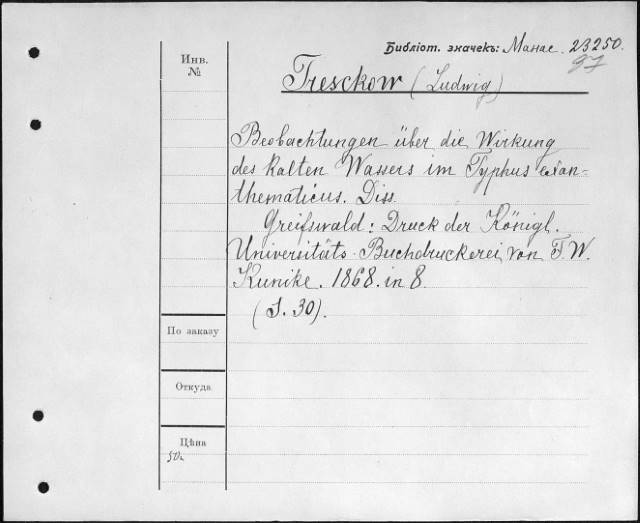 Библіот. значекъ: Манас. 23250.
97
Инв.
№
Tresckow (Ludwig)
Beobachtungen über die Wirkung
des kalten Wassers im Typhus exan-
thematicus. Diss.
Greifswald: Druck der Königl.
Universitäts-Buchdruckerei von F. W.
Kunike. 1868. in 8.
(S. 30).
По заказу
Откуда
Цѣна
50к